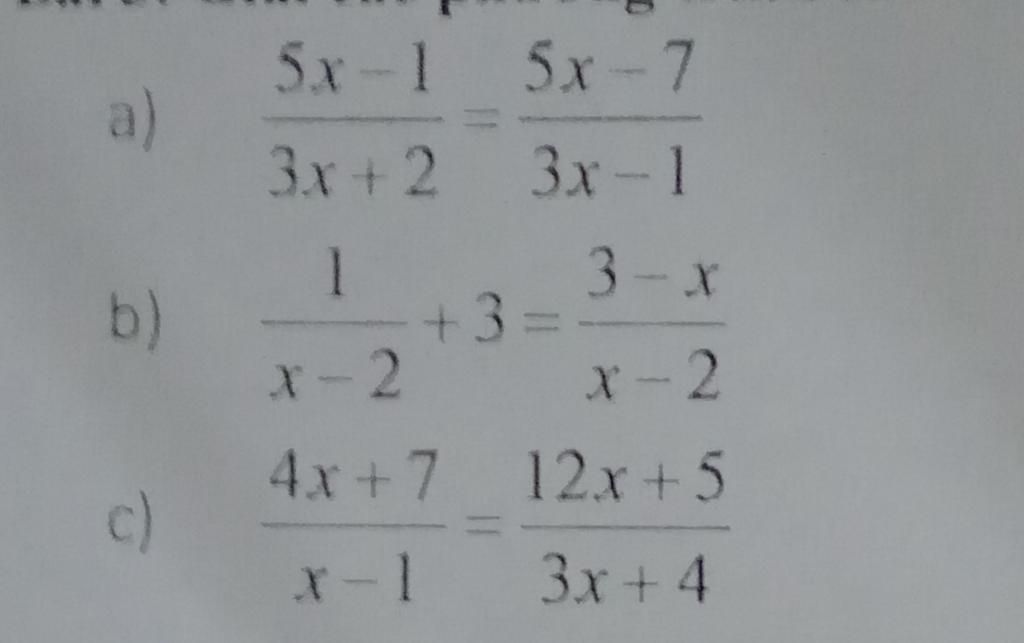 a) \frac{5x-1}{3x+2} = \frac{5x-7}{3x-1}
b) \frac{1}{x-2} + 3 = \frac{3-x}{x-2}
c) \frac{4x+7}{x-1} = \frac{12x+5}{3x+4}